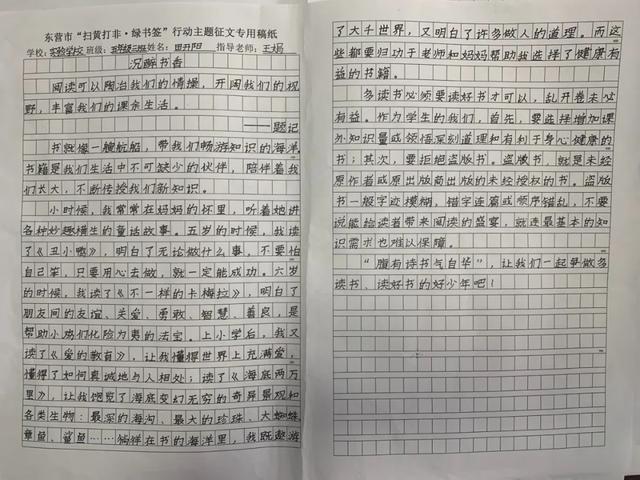 东营市“扫黄打非·绿书签”行动主题征文专用稿纸
学校:实验学校 班级:五年级三班 姓名:田开阳 指导老师:王娟
沉醉书香
阅读可以陶冶我们的情操,开阔我们的视
野,丰富我们的课余生活。
——题记
书就像一艘航船,带我们畅游知识的海洋。
书籍是我们生活中不可缺少的伙伴,陪伴着我
们长大,不断传授我们新知识。
小时候,我常常在妈妈的怀里,听着她讲
各种妙趣横生的童话故事。五岁的时候,我读
了《丑小鸭》,明白了无论做什么事,不要怕
自己笨,只要用心去做,就一定能成功。六岁
的时候,我读了《不一样的卡梅拉》,明白了
朋友间的友谊、关爱,勇敢、智慧、善良,是
帮助小鸡们化险为夷的法宝。上小学后,我又
读了《爱的教育》,让我懂得世界上充满爱,
懂得了如何真诚地与人相处;读了《海底两万
里》,让我饱览了海底变幻无穷的奇异景观和
各类生物:最深的海沟、最大的珍珠、大蜘蛛、
章鱼、鲨鱼……徜徉在书的海洋里,我既遨游
了大千世界,又明白了许多做人的道理。而这
些都要归功于老师和妈妈帮助我选择了健康有
益的书籍。
多读书必须要读好书才可以,乱开卷未必
有益。作为学生的我们,首先,要选择增加课
外知识量或领悟深刻道理和有利于身心健康的
书;其次,要拒绝盗版书。盗版书,就是未经
原作者或原出版商出版的未经授权的书。盗版
书一般字迹模糊,错字连篇或顺序错乱,不要
说能给读者带来阅读的盛宴,就连最基本的知
识需求也难以保障。
“腹有诗书气自华”,让我们一起争做多
读书、读好书的好少年吧!